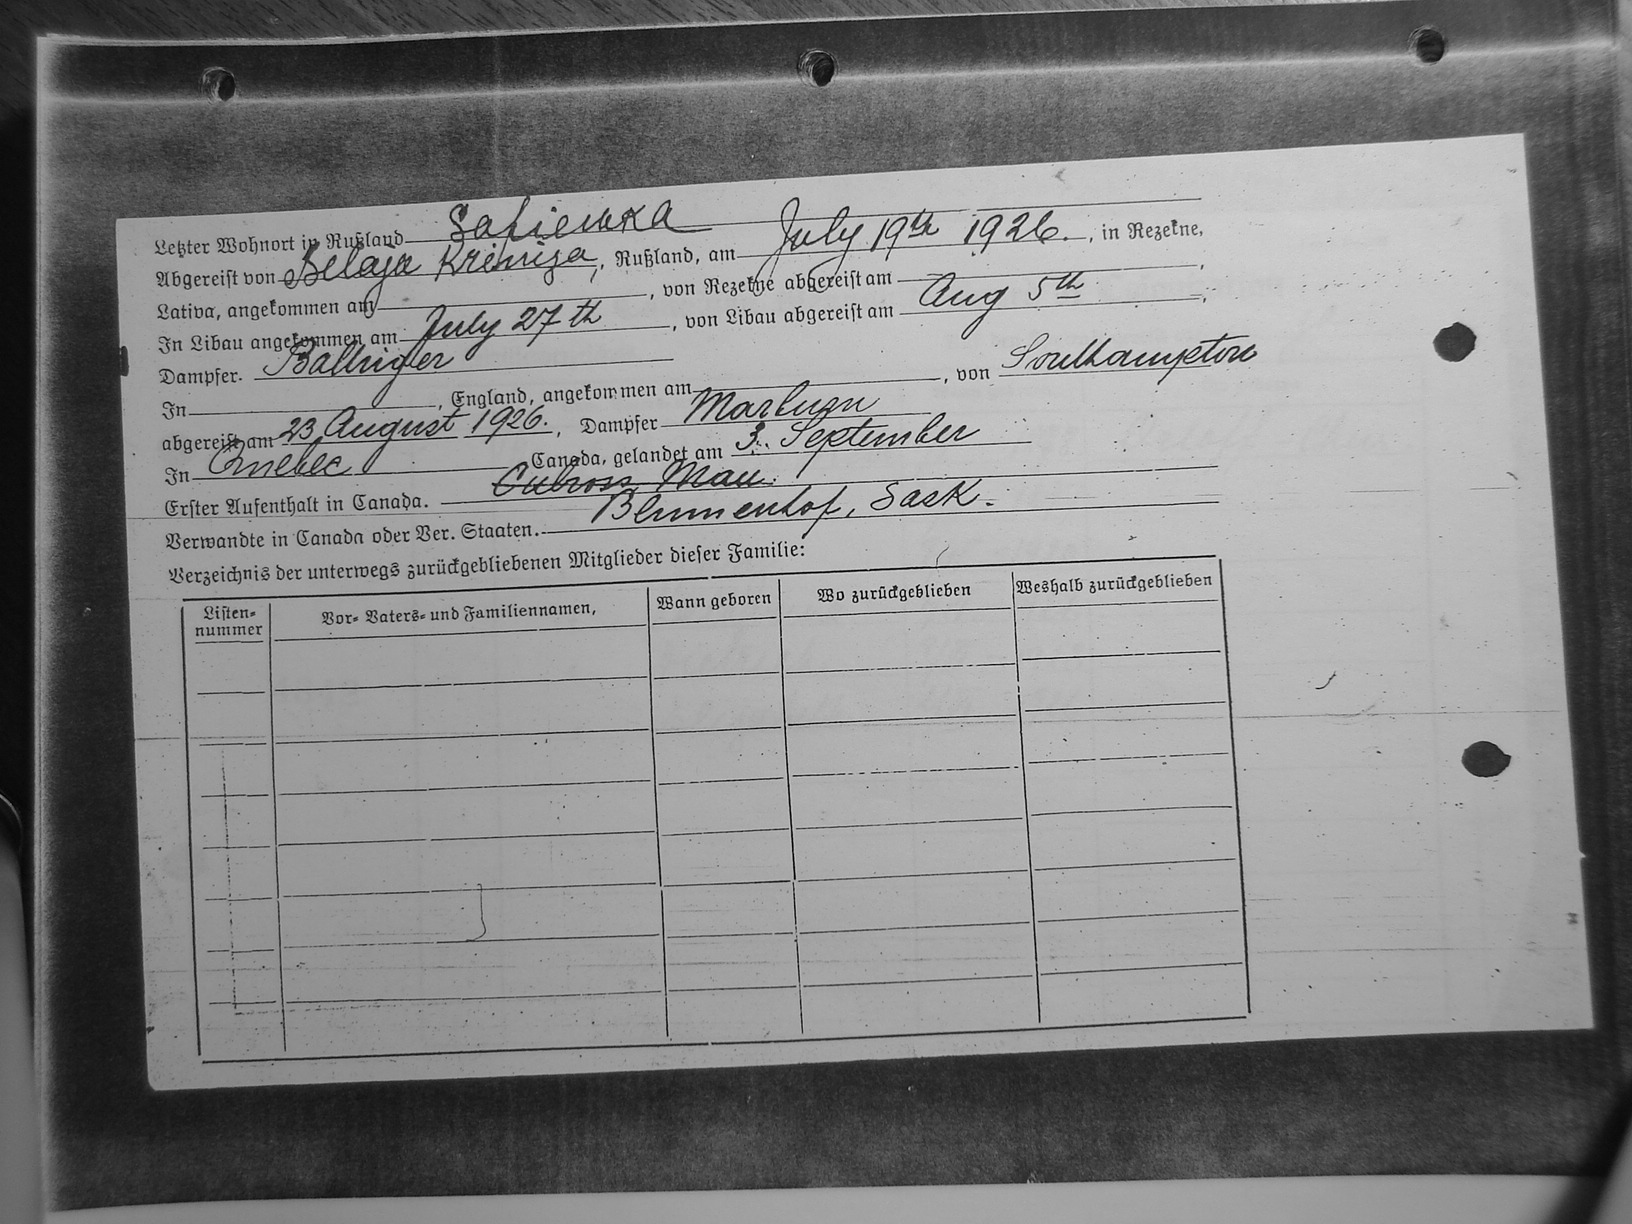 Letzter Wohnort in Rußland Sofiewka
Abgereist von Belaja Kriniza, Rußland, am July 19th 1926. , in Rezekne,
Lativa, angekommen am , von Rezekne abgereist am ,
In Libau angekommen am July 27th , von Libau abgereist am Aug 5th ,
Dampfer. Baltriger
In , England, angekommen am , von Southampton
abgereist am 23 August 1926. , Dampfer Marburn
In Quebec Canada, gelandet am 3. September
Erster Aufenthalt in Canada. Culross Man.
Verwandte in Canada oder Ver. Staaten. Blumenhof, Sask.
Verzeichnis der unterwegs zurückgebliebenen Mitglieder dieser Familie:
Listen-nummer Vor- Vaters- und Familiennamen, Wann geboren Wo zurückgeblieben Weshalb zurückgeblieben